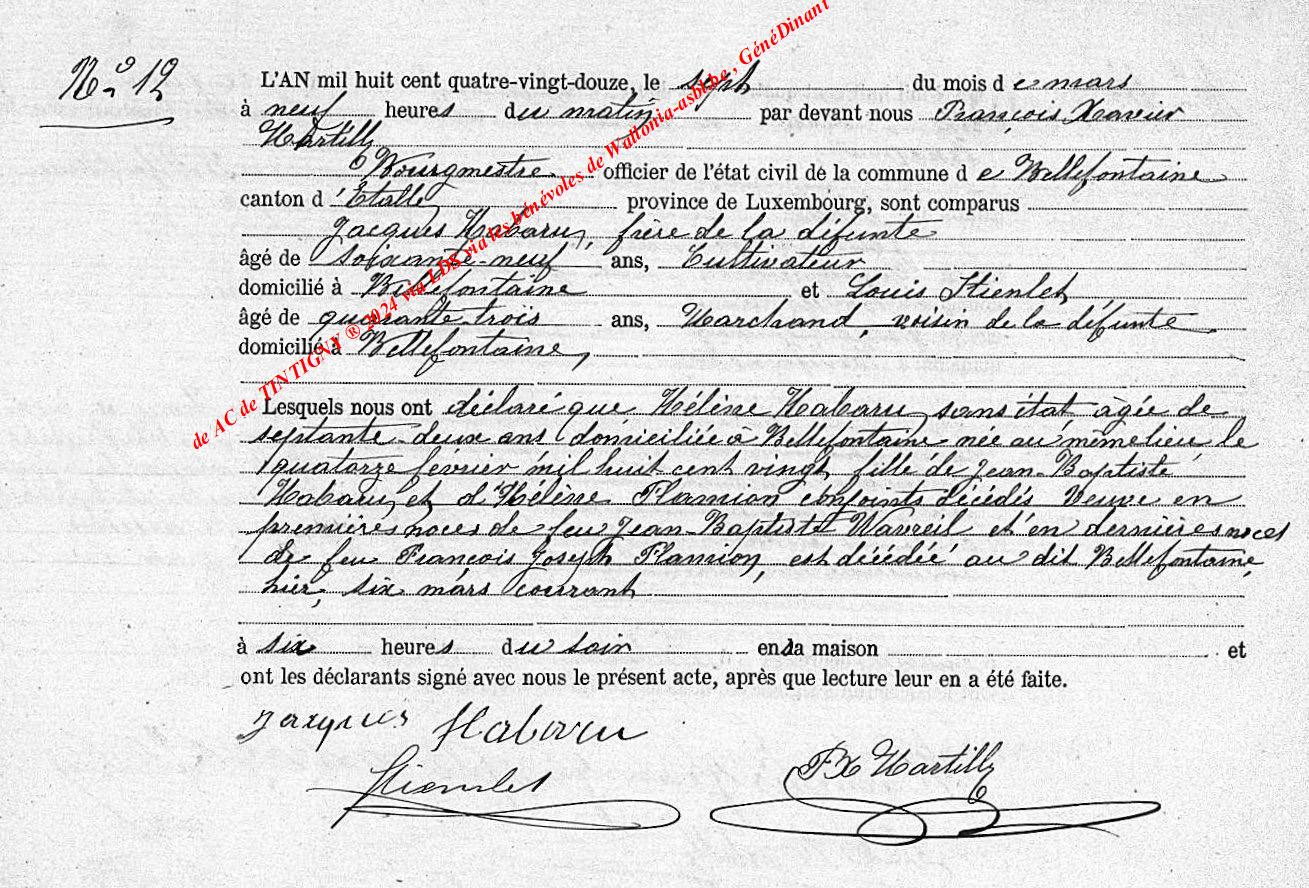 N° 12
L'AN mil huit cent quatre-vingt-douze, le sept du mois de mars
à neuf heures du matin par devant nous François Xavier
Hartilly
Bourgmestre officier de l'état civil de la commune de Bellefontaine
canton d'Étalle province de Luxembourg, sont comparus
Jacques Habaru, frère de la défunte
âgé de soixante-neuf ans, Cultivateur
domicilié à Bellefontaine et Louis Stienlet
âgé de quarante-trois ans, Marchand, voisin de la défunte
domicilié à Bellefontaine,
Lesquels nous ont déclaré que Hélène Habaru, sans état âgée de
septante-deux ans domiciliée à Bellefontaine née au même lieu le
quatorze février mil huit cent vingt, fille de Jean-Baptiste
Habaru, et d'Hélène Flamion conjoints décédés Veuve en
premières noces de feu Jean-Baptiste Wavreil et en dernières noces
de feu François Joseph Flamion, est décédée au dit Bellefontaine,
hier, six mars courant
à six heures du soir en sa maison et
ont les déclarants signé avec nous le présent acte, après que lecture leur en a été faite.
Jacques Habaru
Stienlet
FX Hartilly
de AC de TINTIGNY ® 2024 via LDS via les bénévoles de Wallonia-asbl.be , GénéDinant